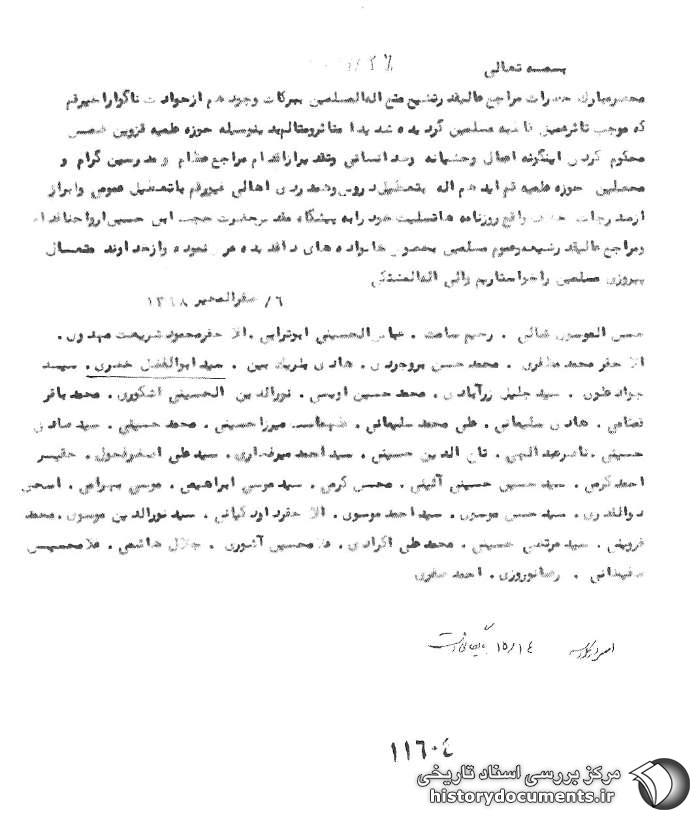 بسمه تعالی
محضر مبارک حضرات مراجع عالیقدر تشیع متع الله المسلمین ببرکات وجودهم از حوادث ناگوار اخیر قم
که موجب تاثر عمیق قاطبه مسلمین گردیده شدیدا متاثر و متالم بدینوسیله حوزه علمیه قزوین ضمن
محکوم کردن اینگونه اعمال وحشیانه وضد انسانی وتقدیر از اقدام مراجع عظام و مدرسین گرام و
محصلین حوزه علمیه قم ایدهم اله بتعطیل دروس وهمدردی اهالی غیور قم با تعطیل عمومی وابراز
از مندرجات خلاف واقع روزنامه ها تسلیت خود را به پیشگاه مقدس حضرت حجت ابن حسن ارواحنا فداه
ومراجع عالیقدر شیعه وعموم مسلمین بخصوص خانواده های داغدیده عرض نموده واز خداوند متعال
پیروزی مسلمین را خواستاریم والی الله المشتکی
٦/ صفر المظفر ١٣٩٨
حسن الموسوی شالی . رحیم سامت . عباس الحسینی ابوترابی . الاحقر محمود شریعت مهدوی .
الاحقر محمد مظفری . محمد حسن بروجردی . هادی باریک بین . سید ابوالفضل خضری . سید
جواد علوی . سید جلیل زرآبادی . محمد حسین اویسی . نورالدین الحسینی اشکوری . محمد باقر
قضاعی . هادی سلیمانی . علی محمد سلیمانی . طهماسب میرزا حسینی . محمد حسینی . سید صادق
حسینی . ناصر عبدالهی . تاج الدین حسینی . سید احمد میرغفاری . سید علی اصغر فحول . حقیر
احمد کرمی . سید حسین حسینی آئینی . محسن کرمی . سید موسی ابراهیمی . موسی بهرامی . اسحق
ذوالقدری . سید حسن موسوی . سید احمد موسوی . الاحقر داود کیانی . سید نورالدین موسوی . محمد
قزوینی . سید مرتضی حسینی . محمد علی اکرادی . غلامحسین آشوری . جلال هاشمی . غلامحسین
همدانی . رضا نوروزی . احمد صفری
١٥/١٤
١١٦٠٤
مرکز بررسی اسناد تاریخی
historydocuments.ir